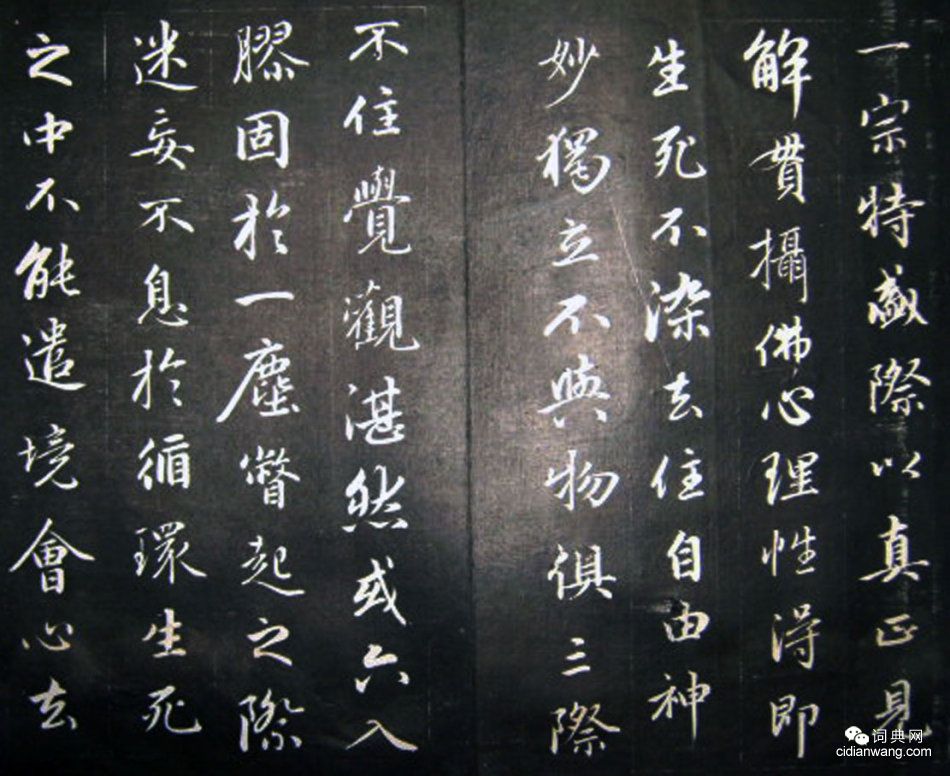 一宗特盛際以真正見
解貫攝佛心理性得即
生死不染去住自由神
妙獨立不與物俱三際
不住覺觀湛然或六入
膠固於一塵瞥起之際
迷妄不息於循環生死
之中不能遣境會心去
词典网
cidianwang.com